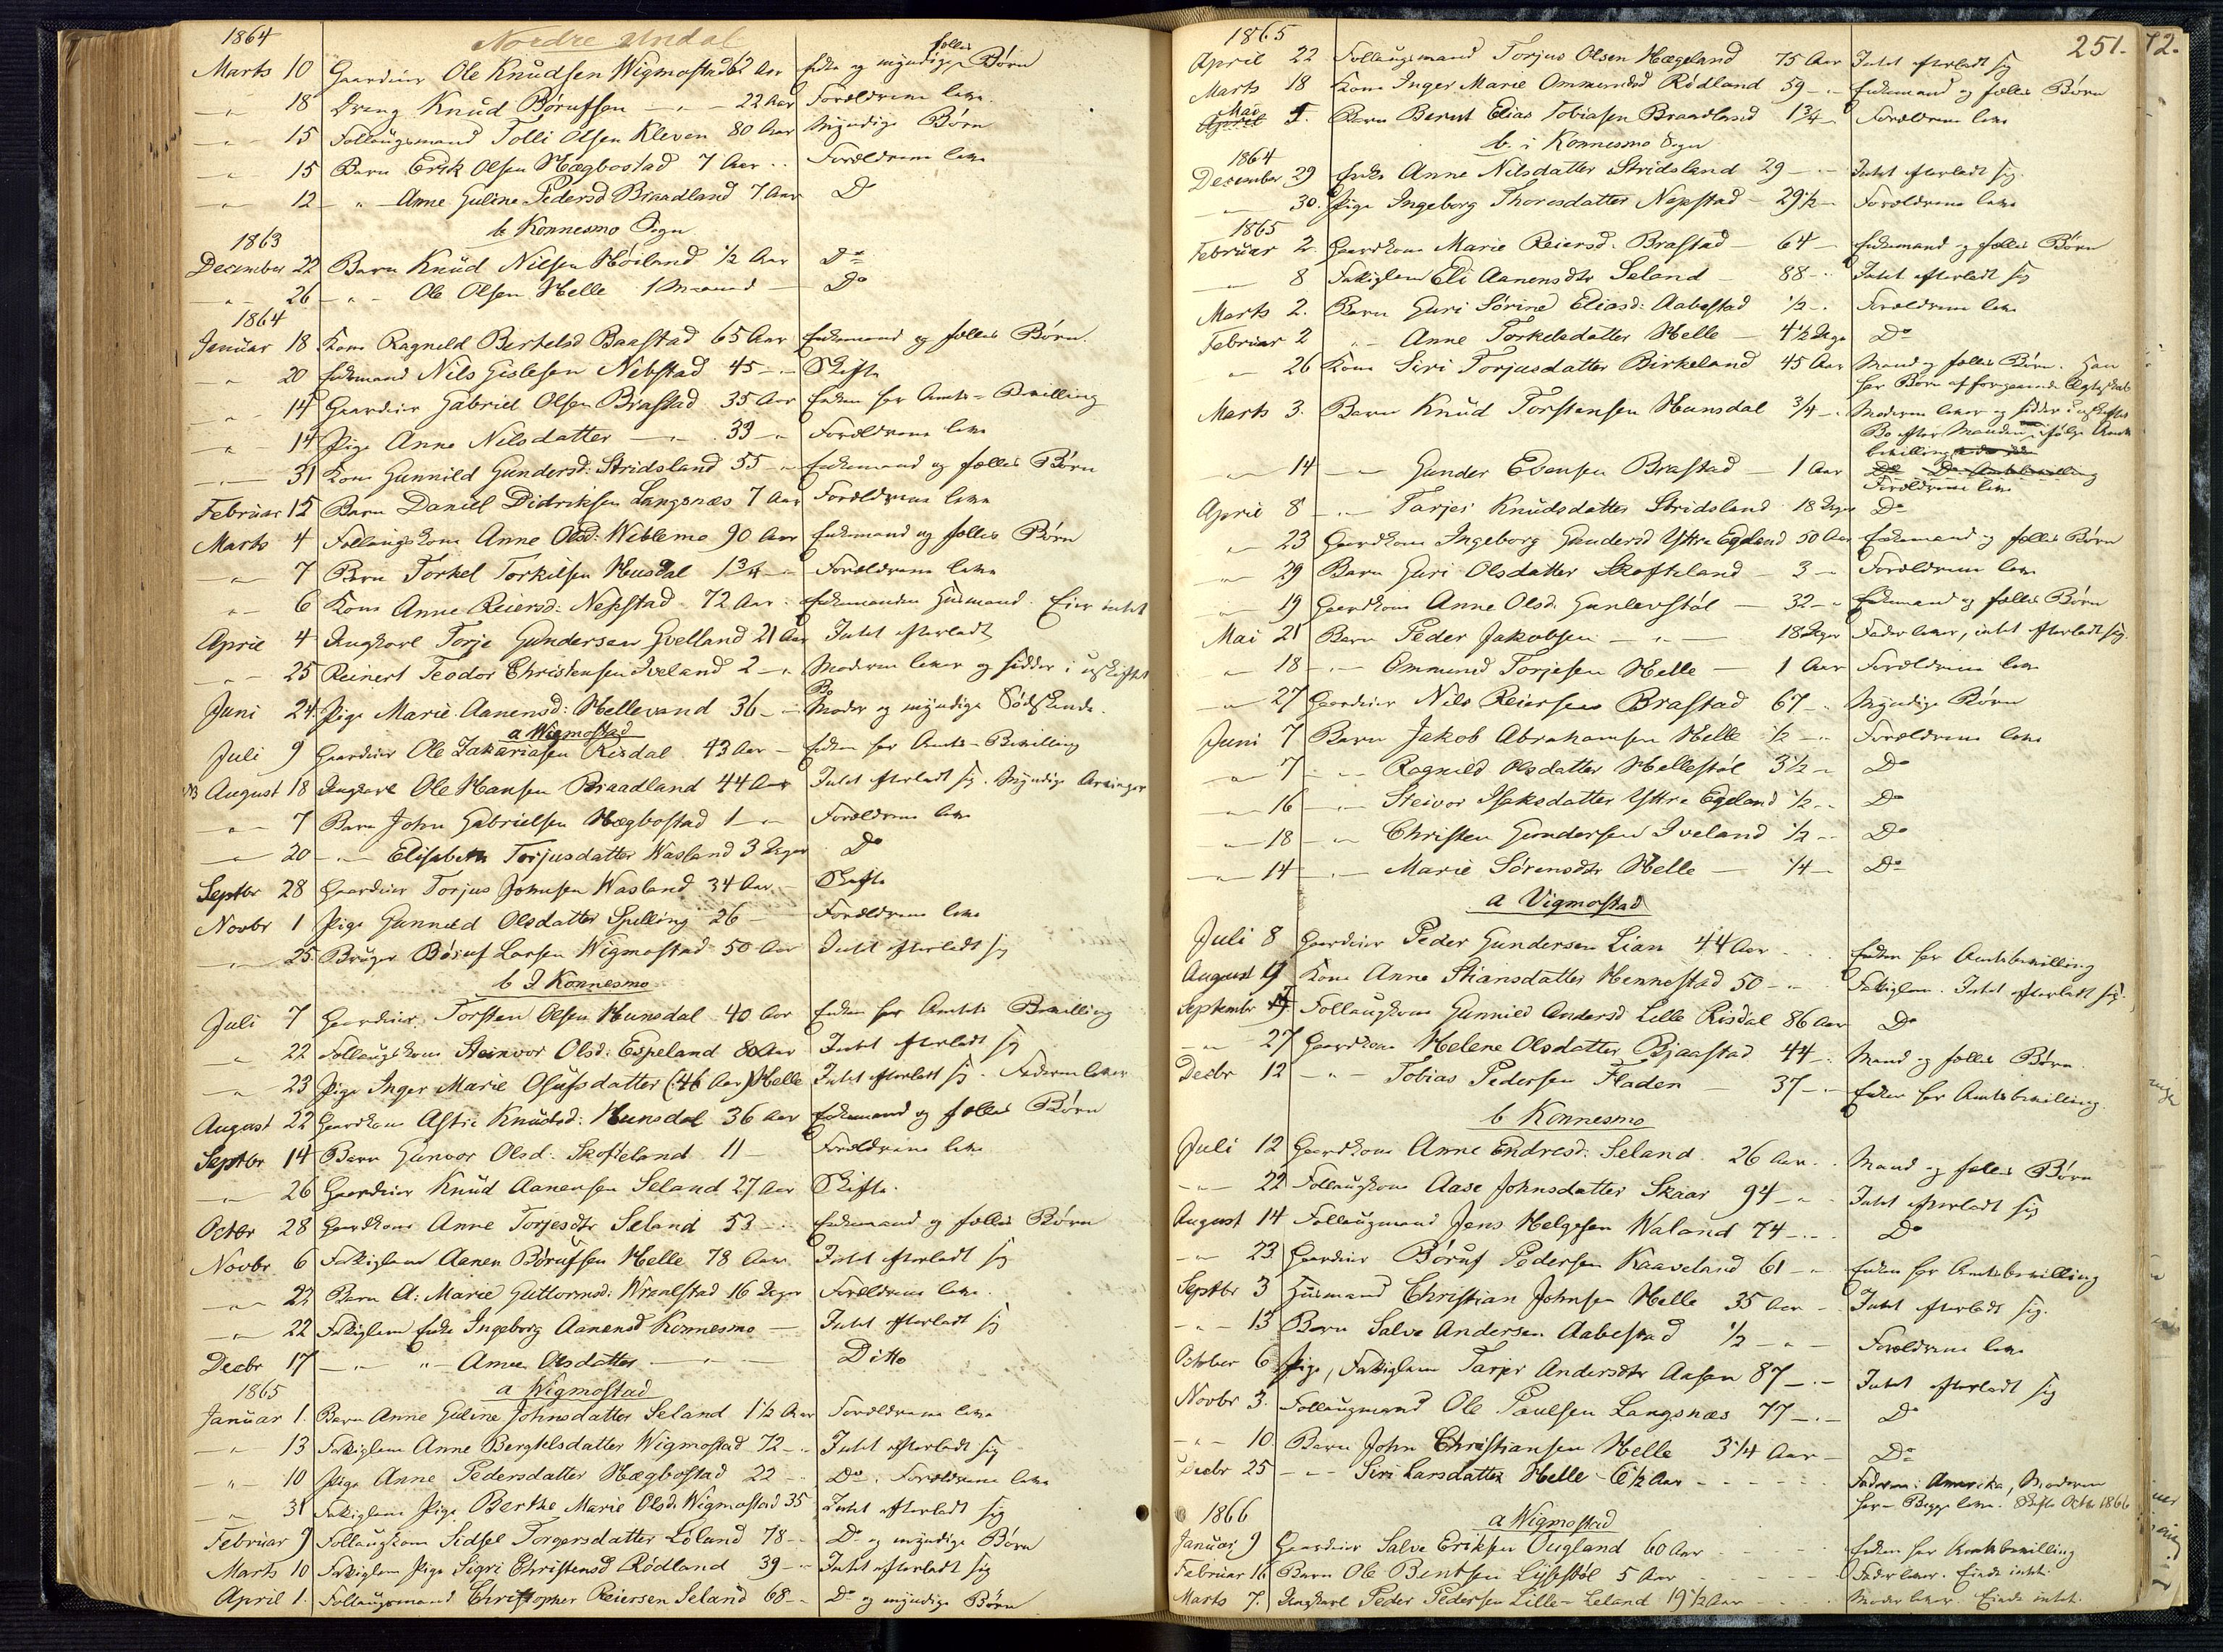 1864 Nordre Undal
Marts 10 Gaardmr Ole Knudsen Wigmostad 62 Aar Enke og myndige fælles Børn
" 18 Dreng Knud Børufsen " 22 Aar Forældrene leve
" 15 Follaugsmand Tolli Olsen Kleven 80 Aar Myndige Børn
" 15 Barn Erik Olsen Hægbostad 7 Aar Forældrene leve
" 12 " Anne Guline Pedersd Braadland 7 Aar Do
b Konnesmo Sogn
1863
December 22 Barn Knud Nilsen Høiland 1/2 Aar Do
" 26 " Ole Olsen Helle 1 Maaned Do
1864
Januar 18 Kone Ragnild Bertelsd Baastad 65 Aar Enkemand og fælles Børn.
" 20 Enkemand Nils Gislesen Nebstad 45 " Skifte
" 14 Gaardmr Gabriel Olsen Brastad 35 Aar Enken har Amts-Bevilling
" 14 Pige Anne Nilsdatter " 33 " Forældrene leve
" 31 Kone Gunnild Gundersd: Stridsland 55 " Enkemand og fælles Børn
Februar 15 Barn Daniel Didriksen Langsnæs 7 Aar Forældrene leve
Marts 4 Follaugskone Anne Olsd: Weblemo 90 Aar Enkemand og fælles Børn
" 7 Barn Torkel Torkilsen Husdal 1 3/4 " Forældrene leve
" 6 Kone Anne Reiersd: Nepstad 72 Aar Enkemanden Husmand. Eier intet
April 4 Ungkarl Torje Gundersen Gvelland 21 Aar Intet efterladt
" 25 Reinert Teodor Christensen Iveland 2 " Moderen lever og sidder i uskiftet Bo
Juni 24 Pige Marie Aanensd: Hellevand 36 " Moder og myndige Sødskende.
a Wigmostad
Juli 9 Gaardmr Ole Zakariasen Risdal 43 Aar Enken har Amts-Bevilling
NB August 18 Ungkarl Ole Hansen Braadland 44 Aar Intet efterladt sig. Myndige Arvinger
" 7 Barn John Gabrielsen Hægbostad 1 " Forældrene leve
" 20 " Elisabeth Torjusdatter Wasland 3 Dage Do
Septbr 28 Gaardmr Torjus Johnsen Wasland 34 Aar Skifte
Novbr 1 Pige Gunnild Olsdatter Spilling 26 Forældrene leve
" 25 Bruger Børuf Larsen Wigmostad 50 Aar Intet efterladt sig
b I Konnesmo
Juli 7 Gaardmr Torsten Olsen Hunsdal 40 Aar Enken har Amtets Bevilling
" 22 Follaugskone Steinvor Olsd: Espeland 80 Aar Intet efterladt sig
" 23 Pige Inger Marie Olufsdatter (46 Aar) Helle Intet efterladt sig. Faderen lever
August 22 Gaardkone Astri Knudsd: Hunsdal 36 Aar Enkemand og fælles Børn
Septbr 14 Barn Gunvor Olsd: Skofteland 11 Forældrene leve
" 26 Gaardmr Knud Aanensen Seland 27 Aar Skifte.
Octbr 28 Gaardkone Anne Torjesdtr Seland 53 " Enkemand og fælles Børn
Novbr 6 Fattiglem Aanen Børufsen Helle 78 Aar Intet efterladt sig
" 22 Barn A: Marie Guttormsd: Wraalstad 16 Dage Forældrene leve.
" 22 Fattiglem Enke Ingeborg Aanensd Konnesmo Intet efterladt sig
Decbr 17 " " Anne Olsdatter " Ditto
1865 a Wigmostad
Januar 1. Barn Anne Guline Johnsdatter Seland 1 1/2 Aar Forældrene leve
" 13 Fattiglem Anne Bergtelsdatter Wigmostad 72 " Intet efterladt sig
" 10 Pige Anne Pedersdatter Hægbostad 22 Do. Forældrene leve
" 31 Fattiglem Pige Berthe Marie Olsd: Wigmostad 35 Intet efterladt sig
Februar 9 Follaugskone Sidsel Torgersdatter Løland 78 " Do og myndige Børn
Marts 10 Fattiglem Pige Sigri Christensd Rødland 39 " Intet efterladt sig
April 1. Follaugsmand Christopher Reiersen Seland 68 " Do og myndige Børn
251. 72.
1865
April 22 Follaugsmand Torjus Olsen Hægeland 75 Aar Intet efterladt sig
Marts 18 Kone Inger Marie Ommundsd Rødland 59 " Enkemand og fælles Børn
April Mai 5. Barn Bernt Elias Tobiasen Braadland 1 3/4 Forældrene leve
b. i Konnesmo Sogn
1864
December 29 Enke Anne Nilsdatter Stridsland 29 " Intet efterladt sig.
" 30. Pige Ingeborg Thoresdatter Nepstad 29 1/2 " Forældrene leve
1865
Februar 2. Gaardkone Marie Reiersd. Brastad 64 " Enkemand og fælles Børn
" 8 Fattiglem Eli Aanensdtr Seland 88 " Intet efterladt sig
Marts 2. Barn Guri Sørine Eliasd: Aabestad 1/2 " Forældrene leve
Februar 2 " Anne Torkelsdatter Helle 4 1/2 Dage Do
" 26 Kone Siri Torjusdatter Birkeland 45 Aar Mand og fælles Børn. Han
har Børn af forgaaende Ægteskab
Marts 3. Barn Knud Torstensen Hunsdal 3/4 " Moderen lever og sidder i uskiftet
Bo efter Manden ifølge Amts
bevilling
" 14 " Gunder Evensen Brastad 1 Aar Do Do Amtsbevilling
Forældrene leve
April 8 " Tarjei Knudsdatter Stridsland 18 Dage Do
" 23 Gaardkone Ingeborg Gundersd Yttre Egeland 50 Aar Enkemand og fælles Børn
" 29 Barn Guri Olsdatter Skofteland 3 " Forældrene leve
" 19 Gaardkone Anne Olsd. Gunlevstøl 32 " Enkemand og fælles Børn
Mai 21 Barn Peder Jakobsen " 18 Dage Fader lever, intet efterladt sig.
" 18 " Ommund Torjesen Helle 1 Aar Forældrene leve
" 27 Gaardmr Nils Reiersen Brastad 67 " Myndige Børn
Juni 7 Barn Jakob Abrahamsen Helle 1/2 " Forældrene leve
" 7 " Ragnild Olsdatter Hellestøl 3 1/2 " Do
" 16 " Steivor Isaksdatter Yttre Egeland 1/2 " Do
" 18 " Christen Gundersen Iveland 1/2 " Do
" 14 " Marie Sørensdtr Helle 1/4 " Do
a Vigmostad
Juli 8 Gaardmr Peder Gundersen Lian 44 Aar Enken har Amtsbevilling
August 9 Kone Anne Stiansdatter Hennestad 50 " Fattiglem. Intet efterladt sig.
Septembr 7 Follaugskone Gunnild Andersd Lille Risdal 86 Aar Do
" 27 Gaardkone Helene Olsdatter Bjaastad 44 " Mand og fælles Børn
Decbr 12 " Tobias Pedersen Fladen 37 " Enken har Amtsbevilling.
b Konnesmo
Juli 12 Gaardkone Anne Endresd: Seland 26 Aar Mand og fælles Børn
" 22 Follaugskone Aase Johnsdatter Skaar 94 " Intet efterladt sig
August 14 Follaugsmand Jens Helgesen Waland 74 " Do
" 23 Gaardmr Børuf Pedersen Kaaveland 61 " Enken har Amtsbevilling
Septbr 3 Husmand Christian Johnsen Helle 35 Aar Intet efterladt sig.
" 13 Barn Salve Andersen Aabestad 1/2 " Forældrene leve
October 6 Pige, Fattiglem Tarjer Andersdtr Aasen 87 " Intet efterladt sig
Novbr 3. Follaugsmand Ole Paulsen Langsnæs 77 " Do
" 10. Barn John Christiansen Helle 3 1/4 Aar Do
Decbr 25 " Siri Larsdatter Helle 6 1/2 Aar Faderen i Amerika, Moderen
her - Begge leve. Skifte Octbr 1866
1866 a Wigmostad
Januar 9 Gaardmr Salve Eriksen Ougland 60 Aar Enken har Amtsbevilling
Februar 16 Barn Ole Bentsen Lyssestøl 5 Aar Fader lever. Eiede intet.
Marts 7. Ungkarl Peder Pedersen Lille-Leland 19 1/2 Aar Moder lever. Eiede intet.